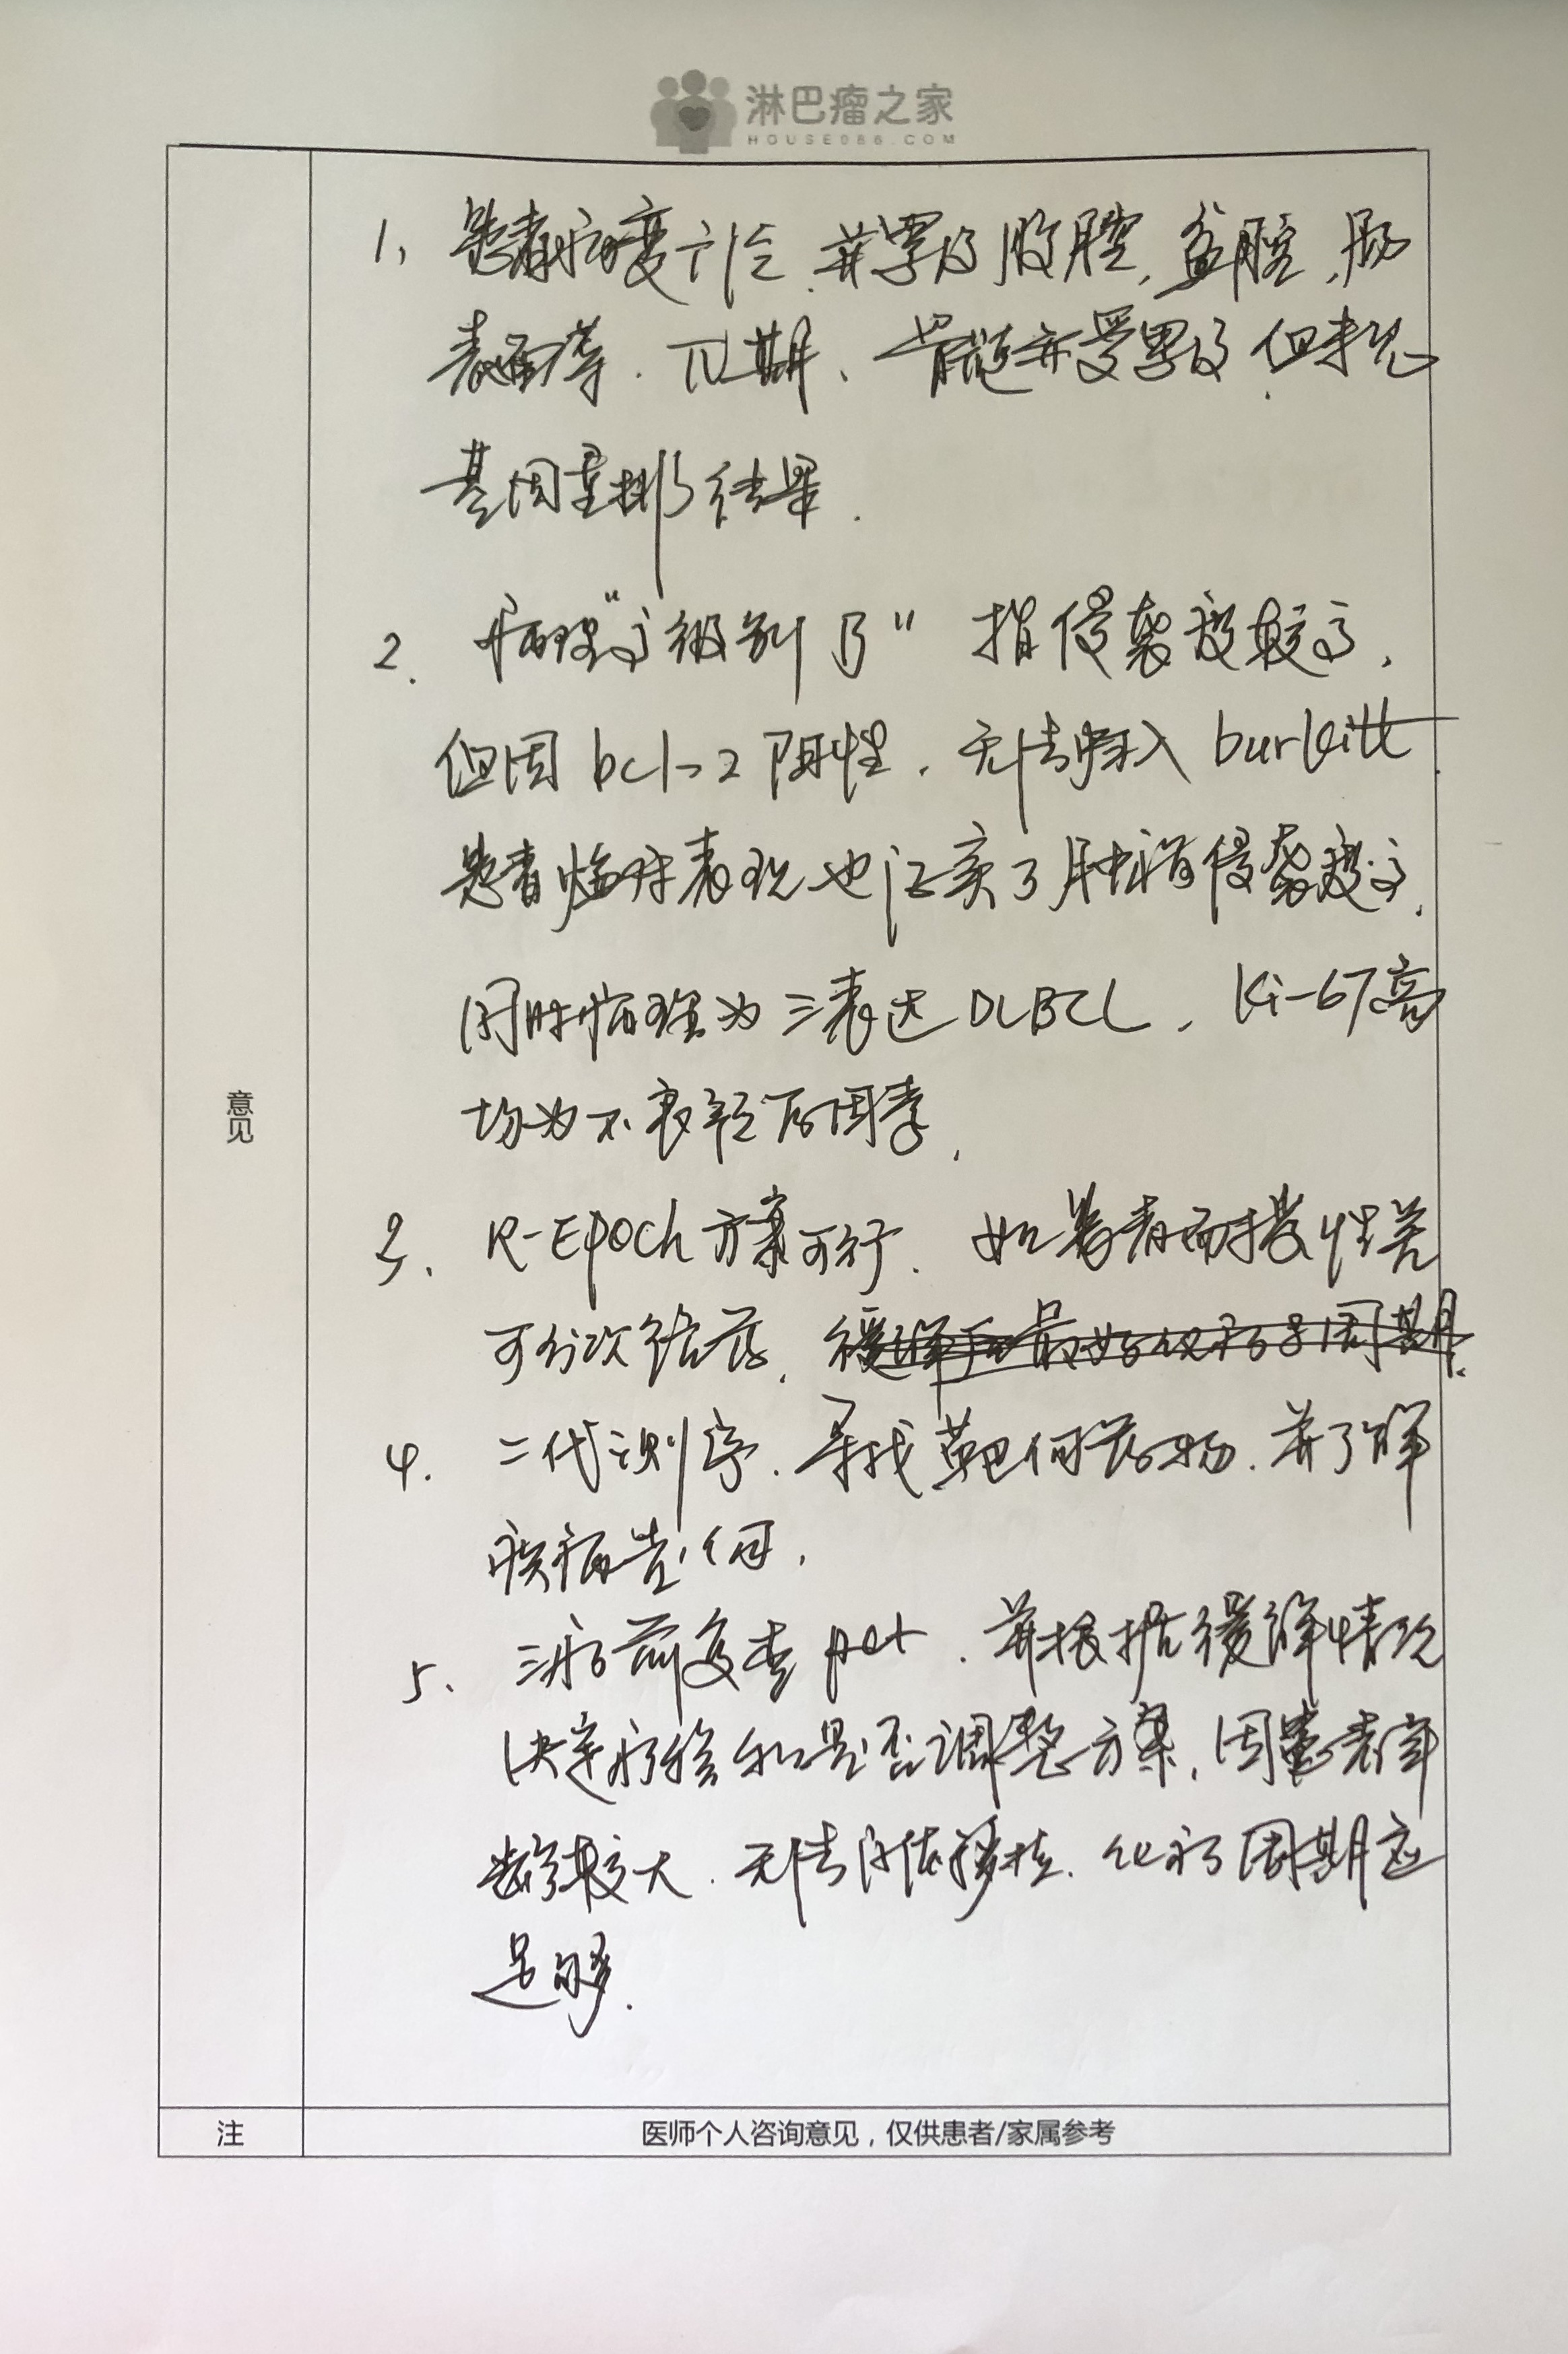 淋巴瘤之家
HOUSE086.COM
1、患者病变广泛.并累及腹腔,盆腔,肠
表面等.IV期、骨髓亦受累及.但未见
基因重排结果.
2.病理"高级别B"指侵袭度较高,
但因bcl-2阴性.无法归入burkitt.
患者临床表现也证实了肿瘤侵袭度高,
同时病理为三表达DLBCL、Ki-67高
均为不良预后因素.
3、R-Epoch方案可行.如患者耐受性差
可分次给药、
4.二代测序.寻找靶向药物.并了解
疾病变何.
5、三疗前复查pet.并根据缓解情况
决定疗程和是否调整方案,因患者年
龄较大.无法自体移植.化疗周期应
足够.
意见
注
医师个人咨询意见,仅供患者/家属参考